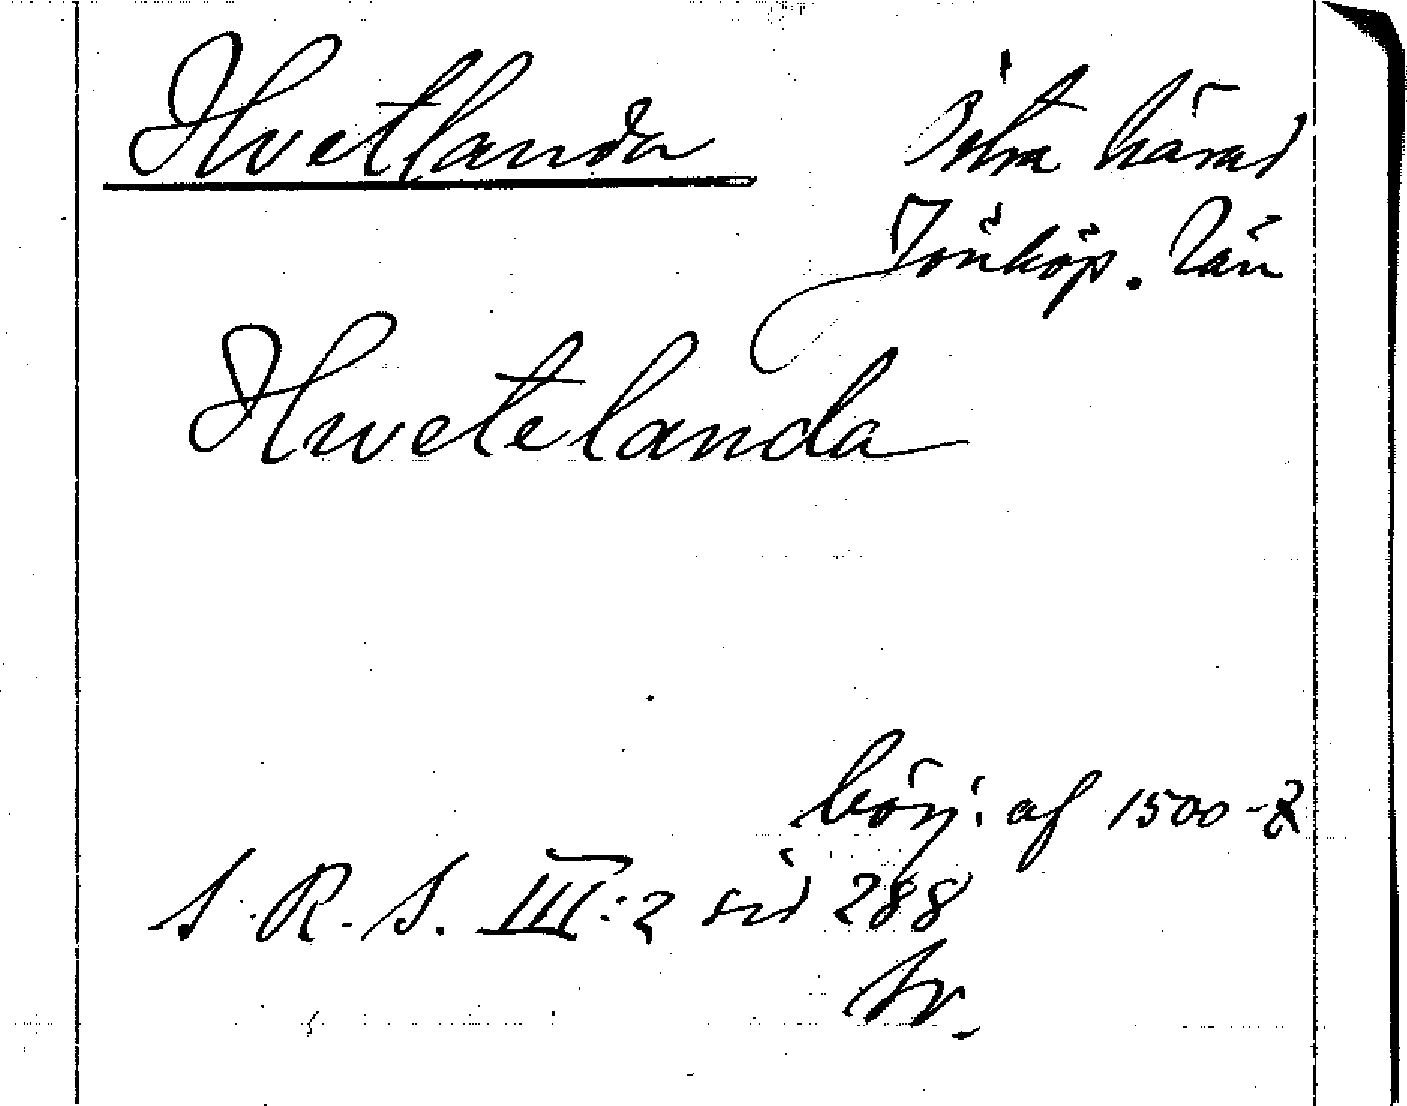 Hvetlanda
Östra härad
Jönköp. län
Hwetelanda
börj. af 1500-t
S. R. S. III:2 sid 288
Sv.